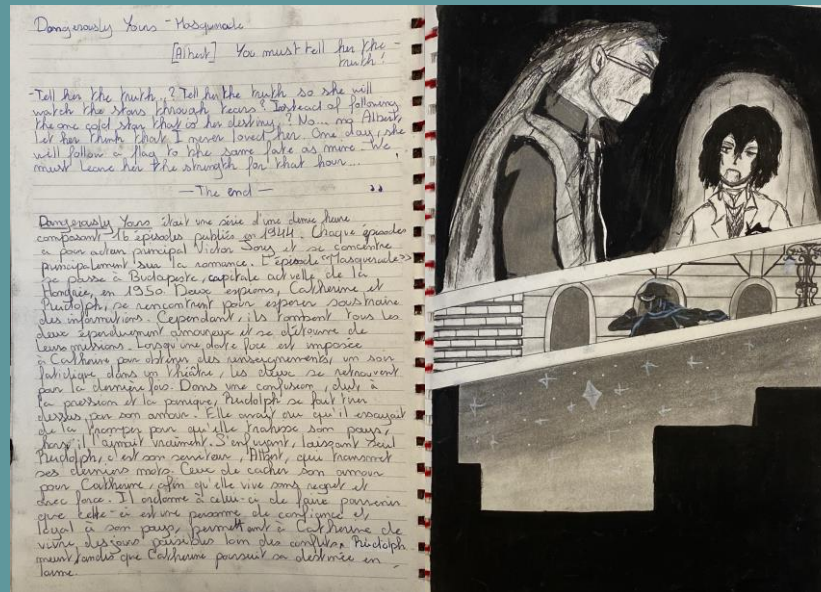 Dangerously Yours - Masquerade
[Albert] You must tell her the
truth!
-Tell her the truth..? Tell her the truth so she will
watch the stars through tears? Instead of following
the one gold star that is her destiny? No... no Albert
Let her think that I never loved her. One day, she
will follow a flag to the same fate as mine. We
must leave her the strength for that hour...
— The end —
Dangerously Yours était une série d'une demie heure
composant 16 épisodes publiés en 1944. Chaque épisodes
a pour acteur principal Victor Jory et se concentre
principalement sur la romance. L'épisode "Masquerade"
se passe à Budapeste, capitale actuelle de la
Hongrie, en 1950. Deux espions, Catherine et
Rudolph, se rencontrent pour espérer soustraire
des informations. Cependant, ils tombent tous les
deux éperdument amoureux et se détourne de
leurs missions. Lorsqu'une date fixe est imposée
à Catherine pour obtenir des renseignements, un soir
fatidique dans un théâtre, les deux se retrouvent
pour la dernière fois. Dans une confusion, dut à
la pression et la panique, Rudolph se fait tirer
dessus par son amour. Elle avait cru qu'il essayait
de la tromper pour qu'elle trahisse son pays,
hors il l'aimait vraiment. S'enfuyant, laissant seul
Rudolph, c'est son serviteur, Albert, qui transmet
ses derniers mots. Ceux de cacher son amour
pour Catherine, afin qu'elle vive sans regret et
avec force. Il ordonne à celui-ci de faire parvenir
que celle-ci est une personne de confiance et
loyal à son pays, permettant à Catherine de
vivre des jours paisibles loin des conflits. Rudolph
meurt tandis que Catherine poursuit sa destinée en
larme.